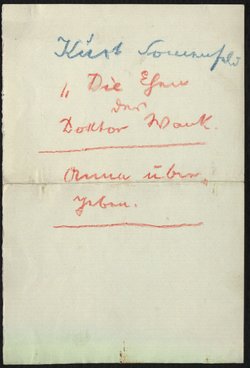 Kurt Sonnenfeld
„ Die Ehen
der
Doktor Wank.
Anna über
geben.